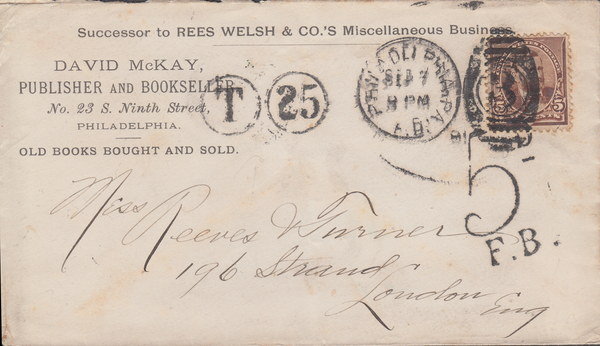 Successor to REES WELSH & CO.'S Miscellaneous Business.
DAVID McKAY,
PUBLISHER AND BOOKSELLER
No. 23 S. Ninth Street,
PHILADELPHIA.
OLD BOOKS BOUGHT AND SOLD.
T
25
PHILADELPHIA, PA.
SEP 7
8 PM
F.D.
5
5
F.B.
Mess Reeves & Turner
196 Strand
London
Eng